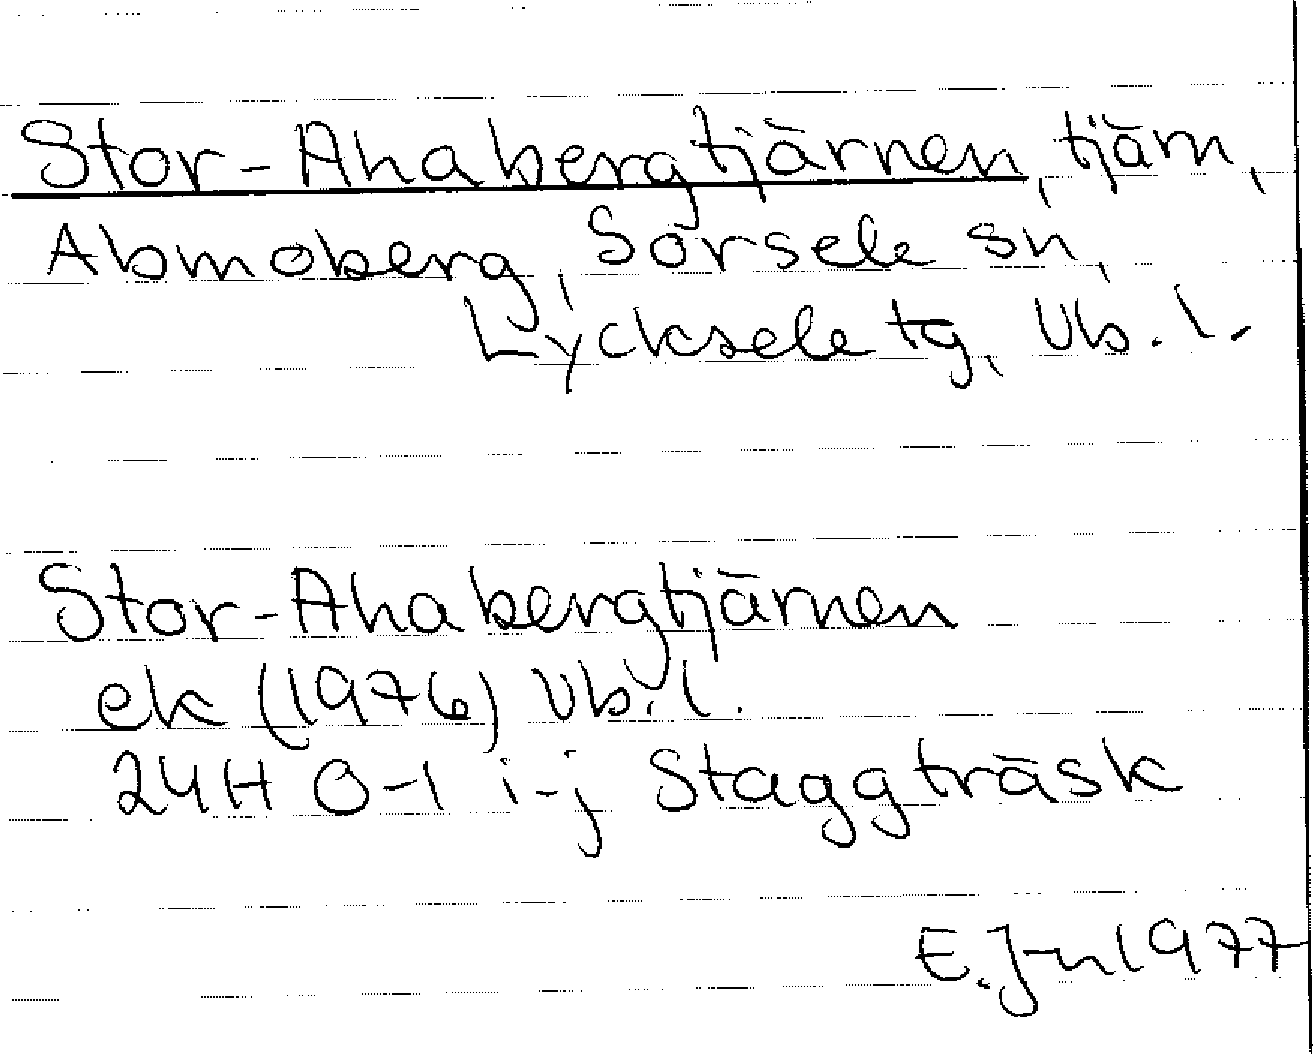 Stor-Ahabergtjärnen, tjärn,
Abmoberg, Sorsele sn,
Lycksele tg, Vb. l.
Stor-Ahabergtjärnen
ek (1976) Vb. l.
24H 0-1 i-j Staggträsk
E. J-n 1977